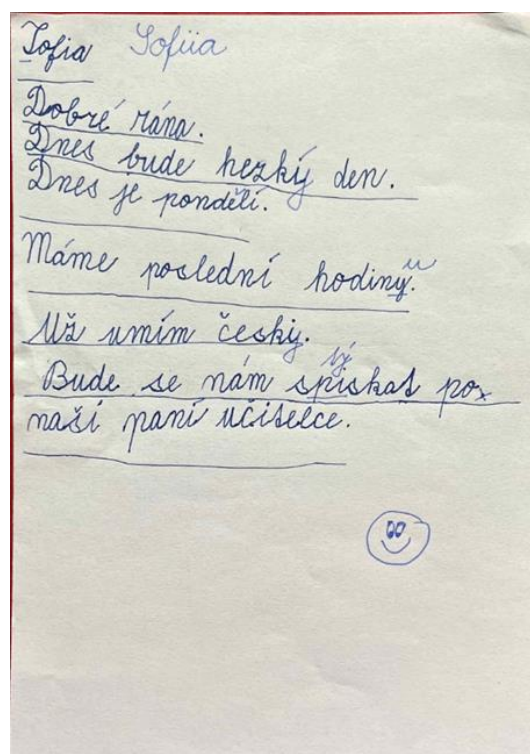 Sofia Sofiia
Dobré rána.
Dnes bude hezký den.
Dnes je pondělí.
Máme poslední hodiný. u
Už umím česky.
tý
Bude se nám spiskat po
naší paní učitelce.